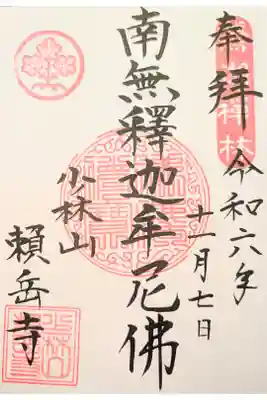 奉拝
令和六年
十一月七日
南無釋迦牟尼佛
少林山
頼岳寺